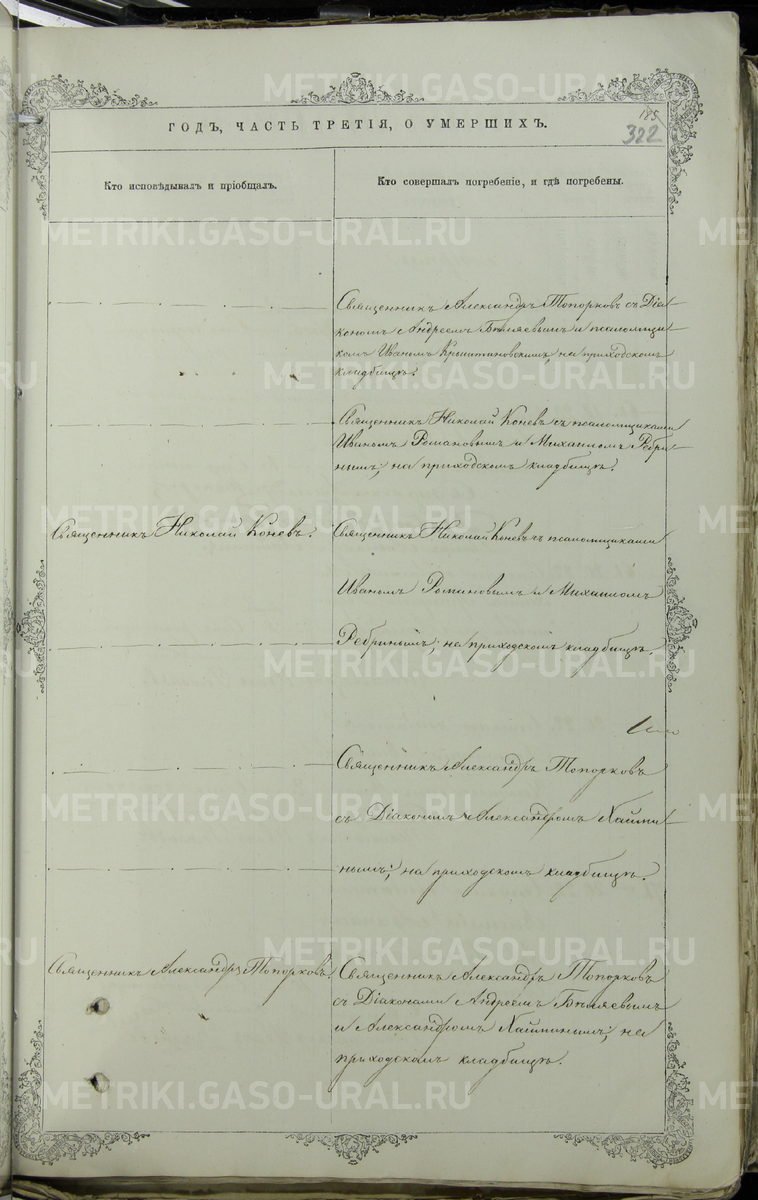 185
322
ГОДЪ, ЧАСТЬ ТРЕТІЯ, О УМЕРШИХЪ.
Кто исповѣдывалъ и пріобщалъ.
Кто совершалъ погребеніе, и гдѣ погребены.
Священникъ Александръ Топорковъ съ Діа-
кономъ Андреемъ Бѣляевымъ и псаломщи-
комъ Иваномъ на приходскомъ
кладбищѣ.
Священникъ Николай Коневъ съ псаломщиками
Иваномъ Романовымъ и Михаиломъ Ребри-
нымъ, на приходскомъ кладбищѣ.
Священникъ Николай Коневъ.
Священникъ Николай Коневъ съ псаломщиками
Иваномъ Романовымъ и Михаиломъ
Ребринымъ, на приходскомъ кладбищѣ.
Священникъ Александръ Топорковъ
съ Діакономъ Александромъ Хаймин-
нымъ, на приходскомъ кладбищѣ.
Священникъ Александръ Топорковъ.
Священникъ Александръ Топорковъ
съ Діаконами Андреемъ Бѣляевымъ
и Александромъ Хайминымъ, на
приходскомъ кладбищѣ.
METRIKI.GASO-URAL.RU